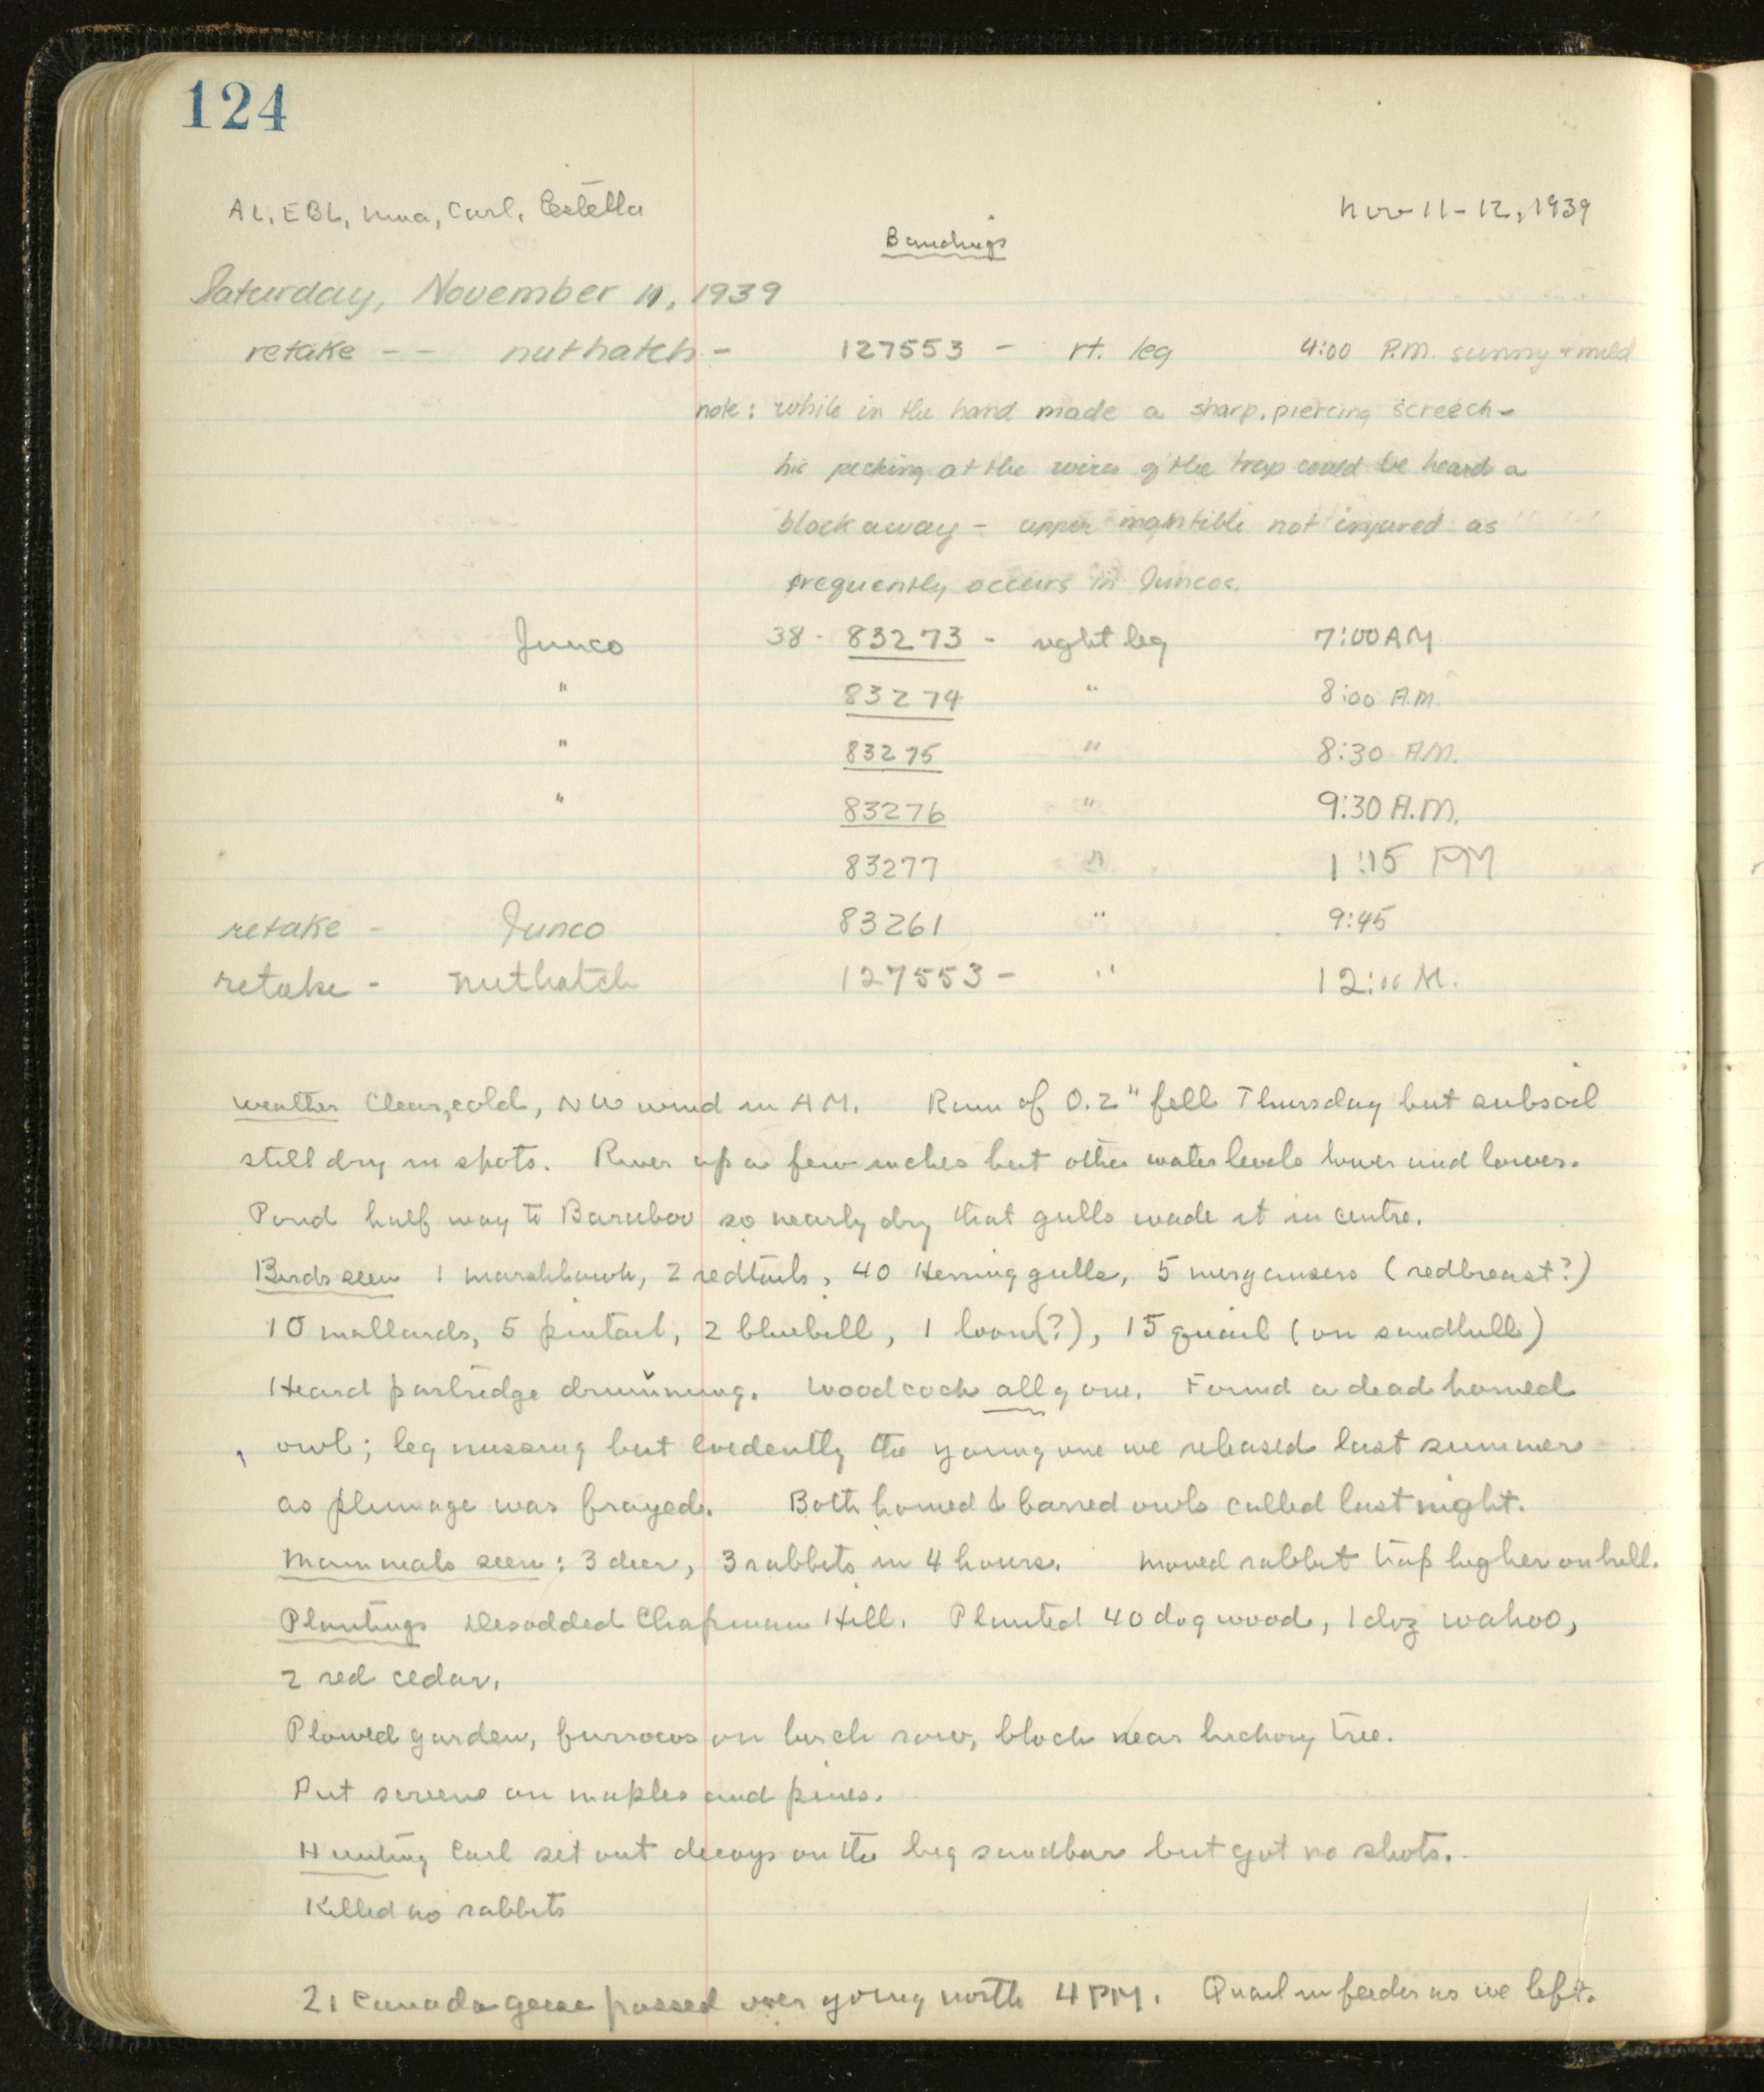 124
AL, EBL, Nina, Carl, Estella Nov 11-12, 1939
Bandings
Saturday, November 11, 1939
retake -- nuthatch - 127553 - rt. leg 4:00 P.M. sunny + mild
note: while in the hand made a sharp, piercing screech -
his pecking at the wires of the trap could be heard a
block away - upper mantible not injured as
frequently occurs in Juncos.
Junco 38 - 83273 - right leg 7:00 AM
" 83274 " 8:00 A.M.
" 83275 " 8:30 A.M.
" 83276 " 9:30 A.M.
83277 " 1:15 PM
retake - Junco 83261 " 9:45
retake - nuthatch 127553 - " 12:00 M.
Weather Clear, cold, NW wind in AM. Rain of 0.2" fell Thursday but subsoil
still dry in spots. River up a few inches but other water levels lower and lower.
Pond half way to Baraboo so nearly dry that gulls wade it in centre.
Birds seen 1 marshhawk, 2 redtails, 40 Herring gulls, 5 mergansers (redbreast?)
10 mallards, 5 pintail, 2 bluebill, 1 loon(?), 15 quail (on sandhill)
Heard partridge drumming. Woodcock all gone. Found a dead horned
owl; leg missing but evidently the young one we released last summer
as plumage was frayed. Both horned & barred owls called last night.
Mammals seen: 3 deer, 3 rabbits in 4 hours. Moved rabbit trap higher on hill.
Plantings Desodded Chapman Hill. Planted 40 dogwood, 1 doz wahoo,
2 red cedar.
Plowed garden, furrows on birch row, block near hickory tree.
Put screens on maples and pines.
Hunting Carl set out decoys on the big sandbar but got no shots.
Killed no rabbits
21 Canada geese passed over going north 4 PM. Quail in feeder as we left.